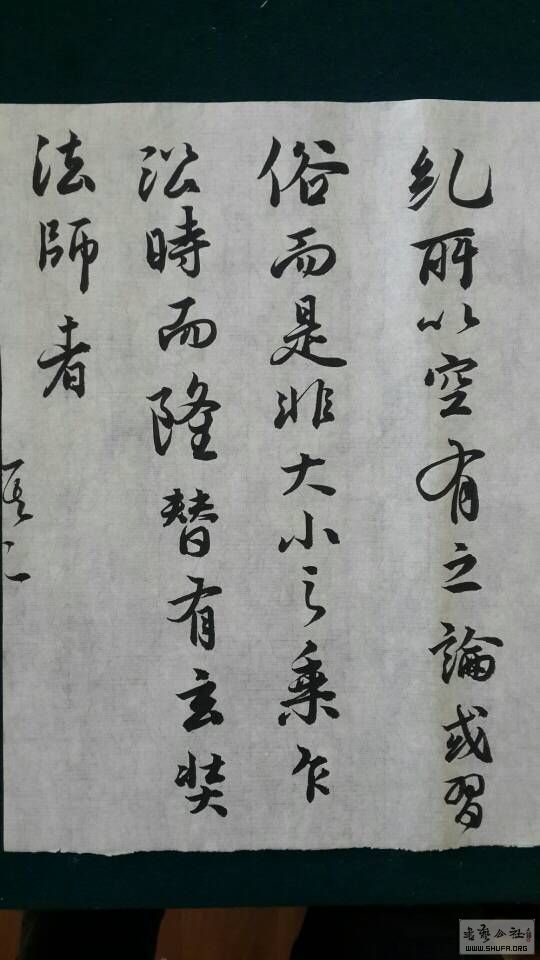 乱所以空有之論或習
俗而是非大小之乗乍
沿時而隆替有玄奘
法師者
WWW.SHUFA.ORG